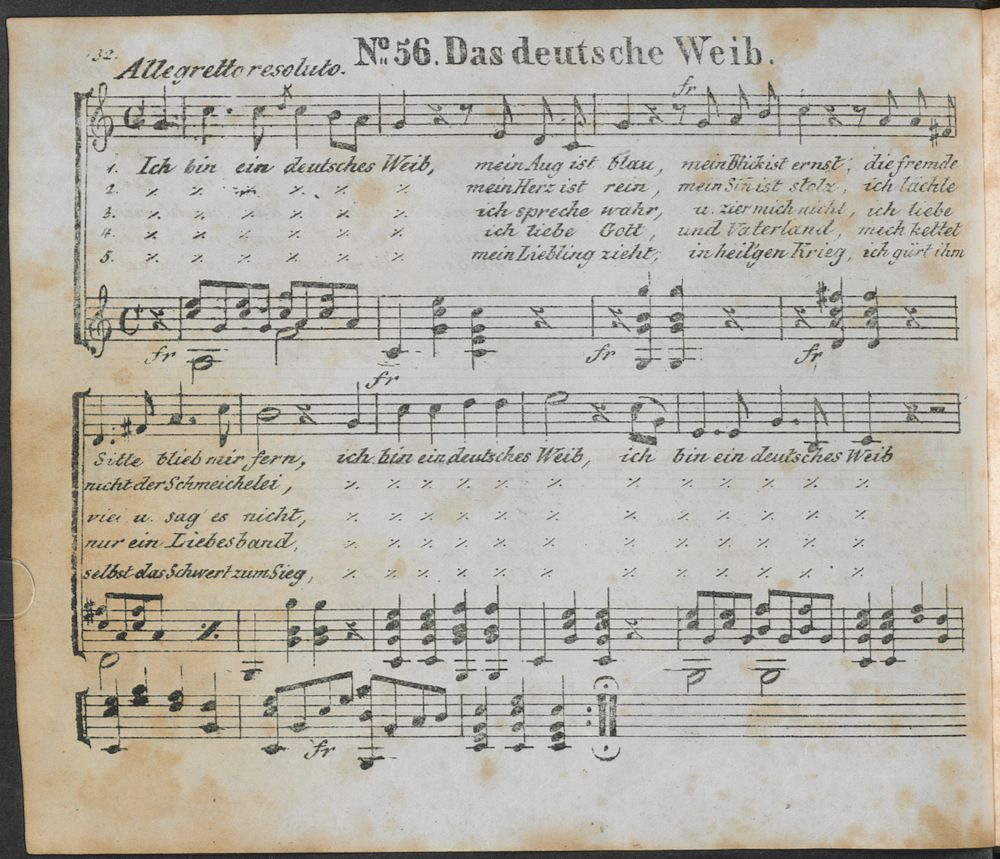 132.
No. 56. Das deutsche Weib.
Allegretto resoluto.
fr
1. Ich bin ein deutsches Weib, mein Aug ist blau, mein Blick ist ernst; die fremde
2. ٪ ٪ ٪ ٪ ٪ ٪ mein Herz ist rein, mein Siñ ist stolz, ich lächle
3. ٪ ٪ ٪ ٪ ٪ ٪ ich spreche wahr, u. zier mich nicht, ich liebe
4. ٪ ٪ ٪ ٪ ٪ ٪ ich liebe Gott, und Vaterland, mich kettet
5. ٪ ٪ ٪ ٪ ٪ ٪ mein Liebling zieht, in heil'gen Krieg, ich gürt ihm
fr fr fr
fr
Sitte blieb mir fern, ich bin ein deutsches Weib, ich bin ein deutsches Weib
nicht der Schmeichelei, ٪ ٪ ٪ ٪ ٪ ٪ ٪ ٪ ٪ ٪ ٪ ٪
viel u. sag es nicht, ٪ ٪ ٪ ٪ ٪ ٪ ٪ ٪ ٪ ٪ ٪ ٪
nur ein Liebesband, ٪ ٪ ٪ ٪ ٪ ٪ ٪ ٪ ٪ ٪ ٪ ٪
selbst das Schwert zum Sieg, ٪ ٪ ٪ ٪ ٪ ٪ ٪ ٪ ٪ ٪ ٪ ٪
fr